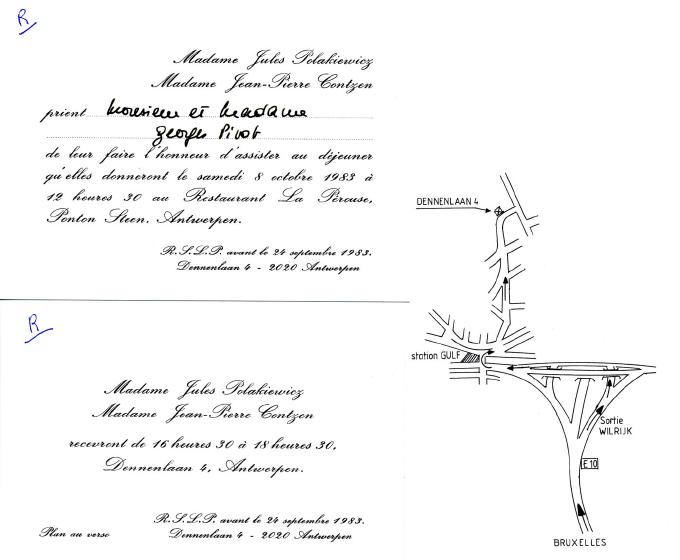 R
Madame Jules Polakiewicz
Madame Jean-Pierre Contzen
prient Monsieur et Madame
Georges Pivot
de leur faire l'honneur d'assister au déjeuner
qu'elles donneront le samedi 8 octobre 1983 à
12 heures 30 au Restaurant La Pérouse,
Ponton Steen, Antwerpen.
R.S.L.P. avant le 24 septembre 1983.
Dennenlaan 4 - 2020 Antwerpen
R
Madame Jules Polakiewicz
Madame Jean-Pierre Contzen
recevront de 16 heures 30 à 18 heures 30,
Dennenlaan 4, Antwerpen.
R.S.L.P. avant le 24 septembre 1983.
Plan au verso Dennenlaan 4 - 2020 Antwerpen
DENNENLAAN 4
station GULF
Sortie
WILRIJK
E10
BRUXELLES